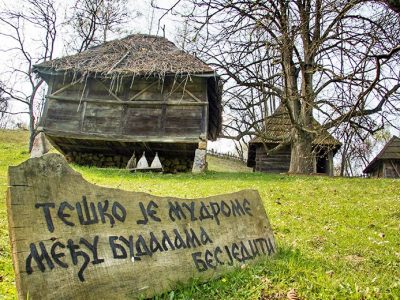 ТЕШКО ЈЕ МУДРОМЕ
МЕЂУ БУДАЛАМА
БЕСЈЕДИТИ